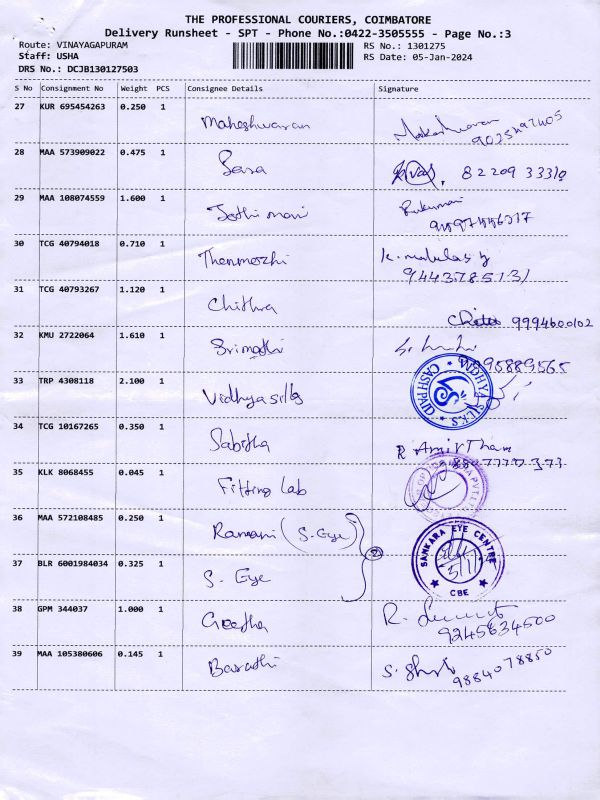 THE PROFESSIONAL COURIERS, COIMBATORE
Delivery Runsheet - SPT - Phone No.:0422-3505555 - Page No.:3
Route: VINAYAGAPURAM RS No.: 1301275
Staff: USHA RS Date: 05-Jan-2024
DRS No.: DCJB130127503
S No Consignment No Weight PCS Consignee Details Signature
27 KUR 695454263 0.250 1
Maheshwaran
28 MAA 573909022 0.475 1
Sara 82209 33310
29 MAA 108074559 1.600 1
Jothi mani
30 TCG 40794018 0.710 1
Thenmozhi
9443785131
31 TCG 40793267 1.120 1
Chithra
9994600102
32 KMU 2722064 1.610 1
Srimathi
33 TRP 4308118 2.100 1
Vidhya silks VIDHYA SILKS CASH PAID
34 TCG 10167265 0.350 1
Sabitha R Amirtham
35 KLK 8068455 0.045 1
Fitting Lab
36 MAA 572108485 0.250 1
Ramani (S. Eye)
2
37 BLR 6001984034 0.325 1
S. Eye SANKARA EYE CENTRE CBE
38 GPM 344037 1.000 1
Geetha
9245634500
39 MAA 105380606 0.145 1
Barathi
9884078850